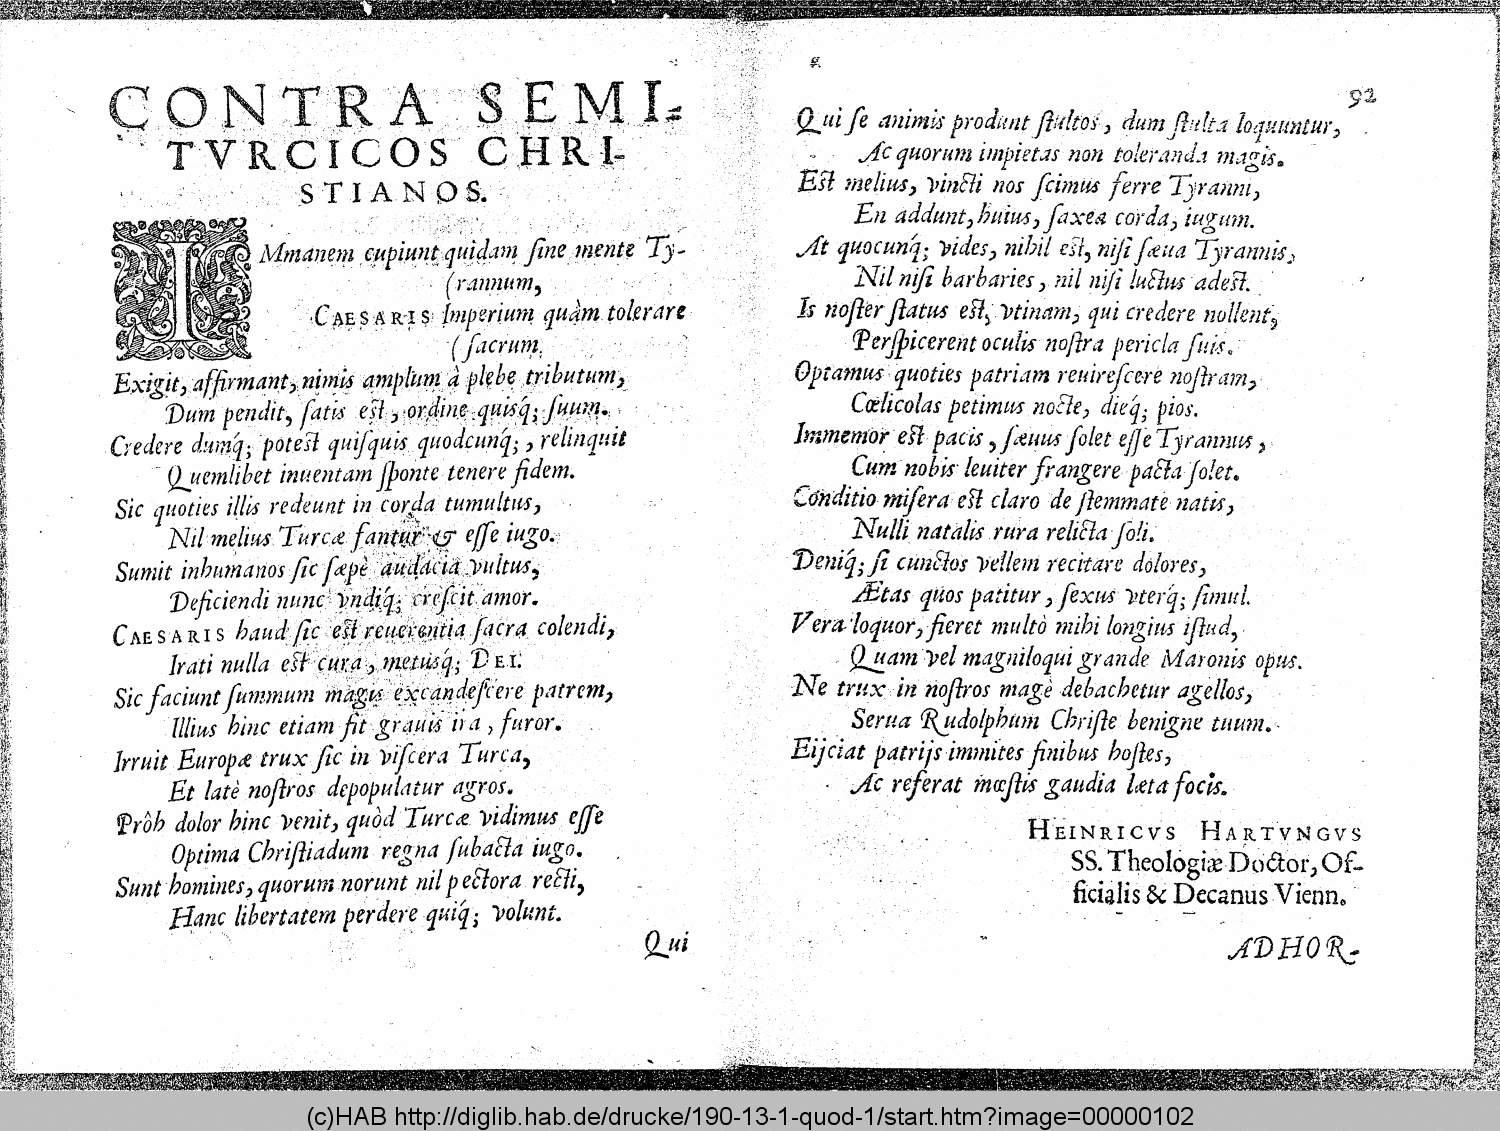 CONTRA SEMI-
TVRCICOS CHRI-
STIANOS.
IMmanem cupiunt quidam ſine mente Ty-
(rannum,
CAESARIS Imperium quàm tolerare
(ſacrum.
Exigit, affirmant, nimis amplum à plebe tributum,
Dum pendit, ſatis eſt, ordine quisq́; ſuum.
Credere dumq́; poteſt quiſquis quodcunq́;, relinquit
Quemlibet inuentam ſponte tenere fidem.
Sic quoties illis redeunt in corda tumultus,
Nil melius Turcæ fantur & eſſe iugo.
Sumit inhumanos ſic ſæpè audacia vultus,
Deficiendi nunc vndiq́; creſcit amor.
CAESARIS haud ſic eſt reuerentia ſacra colendi,
Irati nulla eſt cura, metusq́; DEI.
Sic faciunt ſummum magis excandeſcere patrem,
Illius hinc etiam fit grauis ira, furor.
Irruit Europæ trux ſic in viſcera Turca,
Et latè noſtros depopulatur agros.
Prôh dolor hinc venit, quòd Turcæ vidimus eſſe
Optima Chriſtiadum regna ſubacta iugo.
Sunt homines, quorum norunt nil pectora recti,
Hanc libertatem perdere quiq́; volunt.
Qui
92
Qui ſe animis produnt ſtultos, dum ſtulta loquuntur,
Ac quorum impietas non toleranda magis.
Eſt melius, vincti nos ſcimus ferre Tyranni,
En addunt, huius, ſaxea corda, iugum.
At quocunq́; vides, nihil eſt, niſi ſæua Tyrannis,
Nil niſi barbaries, nil niſi luctus adeſt.
Is noſter ſtatus eſt, vtinam, qui credere nollent,
Perſpicerent oculis noſtra pericla ſuis.
Optamus quoties patriam reuireſcere noſtram,
Cœlicolas petimus nocte, dieq́; pios.
Immemor eſt pacis, ſæuus ſolet eſſe Tyrannus,
Cum nobis leuiter frangere pacta ſolet.
Conditio miſera eſt claro de ſtemmate natis,
Nulli natalis rura relicta ſoli.
Deniq́; ſi cunctos vellem recitare dolores,
Ætas quos patitur, ſexus vterq́; ſimul.
Vera loquor, fieret multò mihi longius iſtud,
Quam vel magniloqui grande Maronis opus.
Ne trux in noſtros magè debachetur agellos,
Serua Rudolphum Chriſte benigne tuum.
Eijciat patrijs immites finibus hoſtes,
Ac referat mœſtis gaudia læta focis.
HEINRICVS HARTVNGVS
SS. Theologiæ Doctor, Of-
ficialis & Decanus Vienn.
ADHOR-
(c)HAB http://diglib.hab.de/drucke/190-13-1-quod-1/start.htm?image=00000102